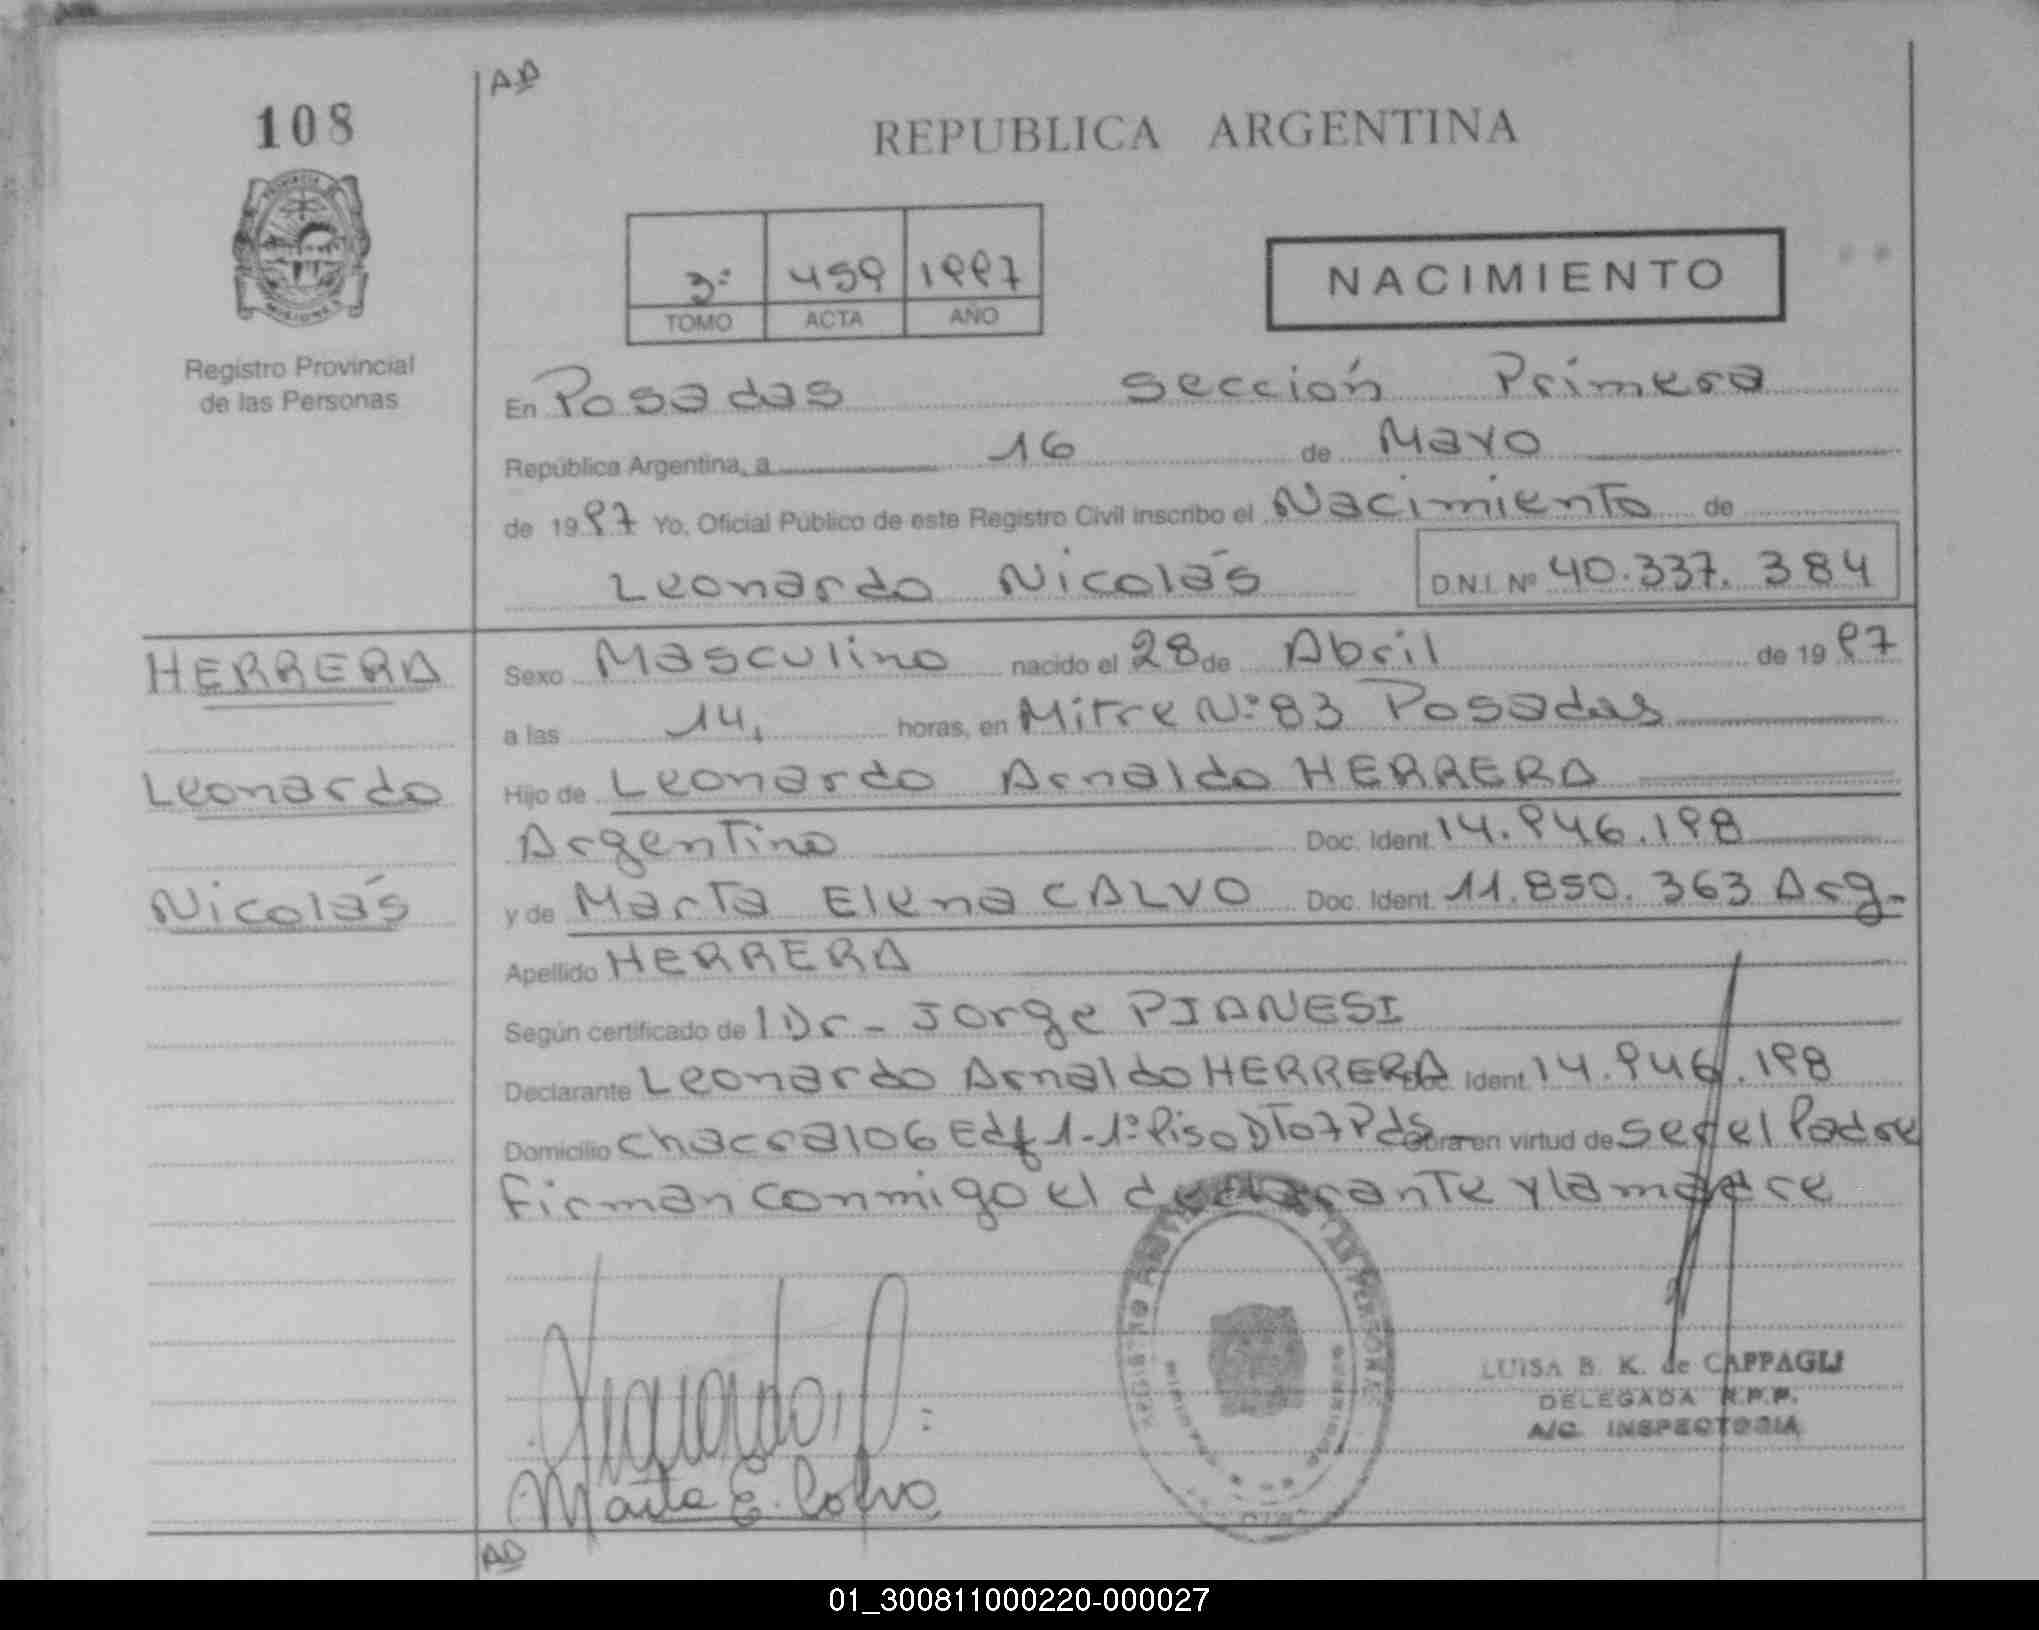 AD
108
REPUBLICA ARGENTINA
3º 459 1997
TOMO ACTA AÑO
NACIMIENTO
Registro Provincial
de las Personas
En Posadas sección Primera
República Argentina, a 16 de Mayo
de 1997 Yo, Oficial Público de este Registro Civil inscribo el Nacimiento de
Leonardo Nicolás D.N.I. Nº 40.337.384
HERRERA
Leonardo
Nicolás
Sexo Masculino nacido el 28 de Abril de 1997
a las 14, horas, en Mitre Nº 83 Posadas
Hijo de Leonardo Arnaldo HERRERA
Argentino Doc. Ident. 14.946.198
y de Marta Elena CALVO Doc. Ident. 11.850.363 Arg.
Apellido HERRERA
Según certificado de l Dr- Jorge PIANESI
Declarante Leonardo Arnaldo HERRERA Doc. Ident. 14.946.198
Domicilio chacra 106 Edf 1-1º Piso DTo 7 Pds- Obra en virtud de ser el Padre
Firman conmigo el declarante y la madre
Marta E. Calvo
LUISA B. K. de CAPPAGLI
DELEGADA R.P.P.
A/C. INSPECTORIA
AD
01_300811000220-000027